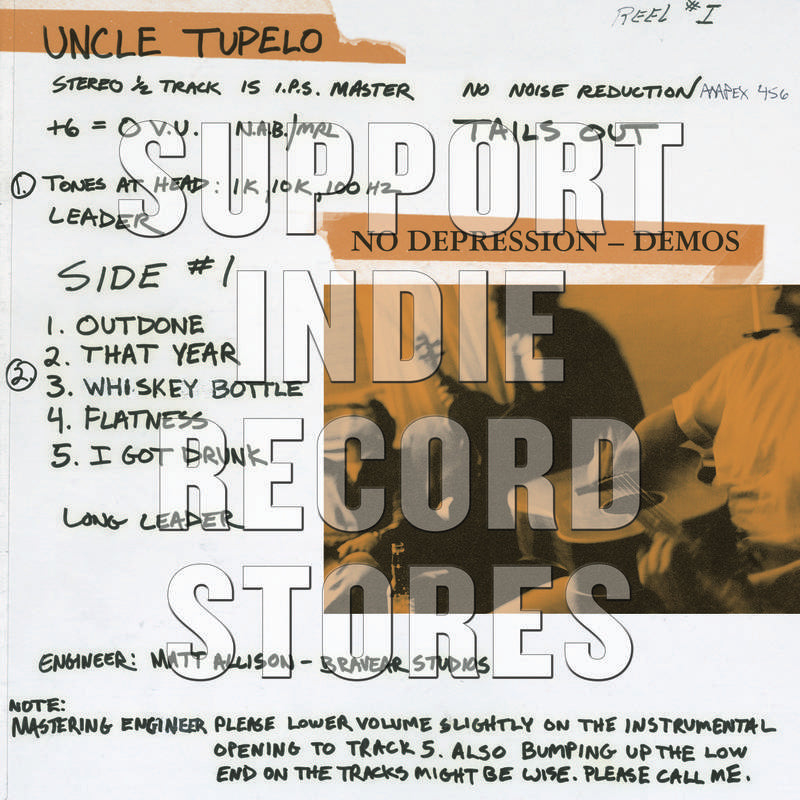 REEL #1
UNCLE TUPELO
STEREO ½ TRACK 15 I.P.S. MASTER NO NOISE REDUCTION AMPEX 456
+6 = O V.U. N.A.B./MRL TAILS OUT
1. TONES AT HEAD: 1K, 10K, 100 HZ
LEADER
NO DEPRESSION – DEMOS
SIDE #1
1. OUTDONE
2. THAT YEAR
2. 3. WHISKEY BOTTLE
4. FLATNESS
5. I GOT DRUNK
LONG LEADER
SUPPORT
INDIE
RECORD
STORES
ENGINEER: MATT ALLISON - BRAVEAR STUDIOS
NOTE:
MASTERING ENGINEER PLEASE LOWER VOLUME SLIGHTLY ON THE INSTRUMENTAL
OPENING TO TRACK 5. ALSO BUMPING UP THE LOW
END ON THE TRACKS MIGHT BE WISE. PLEASE CALL ME.